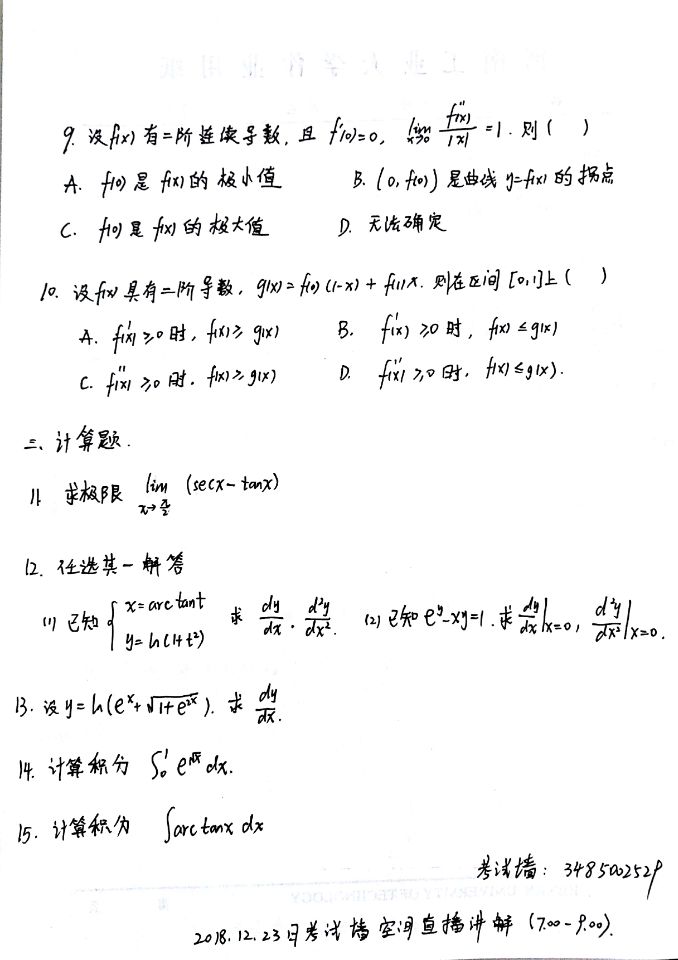 9. 设f(x)有二阶连续导数, 且 f'(0)=0, lim x→0 f''(x)/|x| =1. 则( )
A. f(0)是f(x)的极小值 B. (0, f(0))是曲线y=f(x)的拐点
C. f(0)是f(x)的极大值 D. 无法确定
10. 设f(x)具有二阶导数, g(x)=f(0)(1-x)+f(1)x. 则在区间[0,1]上( )
A. f'(x)≥0时, f(x)≥g(x) B. f'(x)≥0时, f(x)≤g(x)
C. f''(x)≥0时, f(x)≥g(x) D. f''(x)≥0时, f(x)≤g(x).
三、计算题.
11 求极限 lim x→π/2 (secx-tanx)
12. 任选其一解答
(1) 已知 { x=arctant y=ln(1+t²) 求 dy/dx, d²y/dx². (2) 已知 e^y-xy=1. 求 dy/dx|x=0, d²y/dx²|x=0.
13. 设y=ln(e^x+√1+e^2x). 求 dy/dx.
14. 计算积分 ∫₀¹ e^√x dx.
15. 计算积分 ∫arctanx dx
考试墙: 3485002529
2018.12.23日考试墙空间直播讲解 (7.00-9.00).